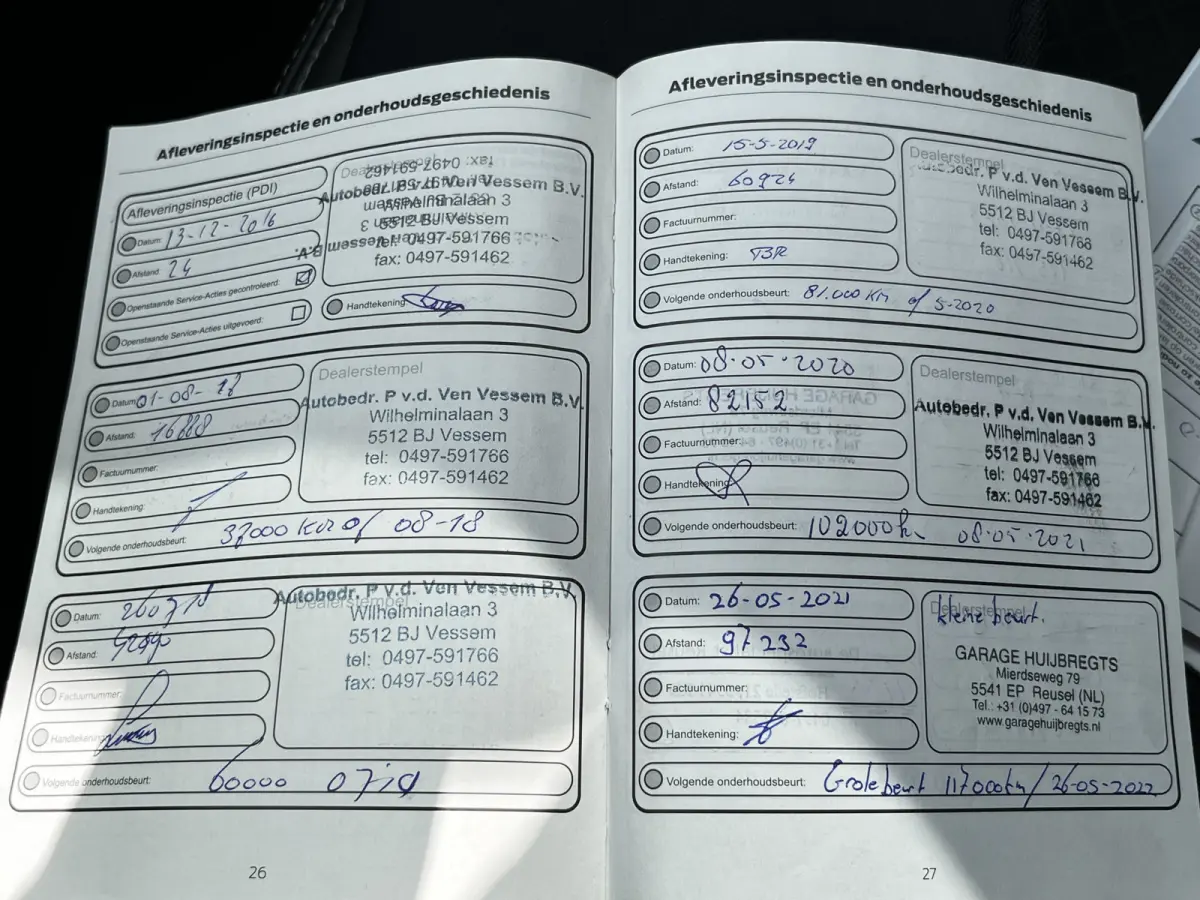 Afleveringsinspectie en onderhoudsgeschiedenis
Afleveringsinspectie (PDI)
Datum: 13-12-2016
Afstand: 24
Openstaande Service-Acties gecontroleerd:
Openstaande Service-Acties uitgevoerd:
Dealerstempel
Autobedr. P v.d. Ven Vessem B.V.
Wilhelminalaan 3
5512 BJ Vessem
tel: 0497-591766
fax: 0497-591462
Handtekening
Datum: 01-08-17
Afstand: 16888
Factuurnummer:
Handtekening:
Volgende onderhoudsbeurt: 37000 km of 08-18
Dealerstempel
Autobedr. P v.d. Ven Vessem B.V.
Wilhelminalaan 3
5512 BJ Vessem
tel: 0497-591766
fax: 0497-591462
Datum:
Afstand:
Factuurnummer:
Handtekening:
Volgende onderhoudsbeurt: 60000 0719
Dealerstempel
Autobedr. P v.d. Ven Vessem B.V.
Wilhelminalaan 3
5512 BJ Vessem
tel: 0497-591766
fax: 0497-591462
26
Afleveringsinspectie en onderhoudsgeschiedenis
Datum: 15-5-2019
Afstand: 60924
Factuurnummer:
Handtekening: TBR
Volgende onderhoudsbeurt: 81.000 km of 5-2020
Dealerstempel
Autobedr. P v.d. Ven Vessem B.V.
Wilhelminalaan 3
5512 BJ Vessem
tel: 0497-591766
fax: 0497-591462
Datum: 08-05-2020
Afstand: 82152
Factuurnummer:
Handtekening:
Volgende onderhoudsbeurt: 102000km 08-05-2021
Dealerstempel
Autobedr. P v.d. Ven Vessem B.V.
Wilhelminalaan 3
5512 BJ Vessem
tel: 0497-591766
fax: 0497-591462
Datum: 26-05-2021
Afstand: 97232
Factuurnummer:
Handtekening:
Volgende onderhoudsbeurt: Grote beurt 117000km/26-05-2022
Dealerstempel
kleine beurt.
GARAGE HUIJBREGTS
Mierdseweg 79
5541 EP Reusel (NL)
Tel.: +31 (0)497 - 64 15 73
www.garagehuijbregts.nl
27